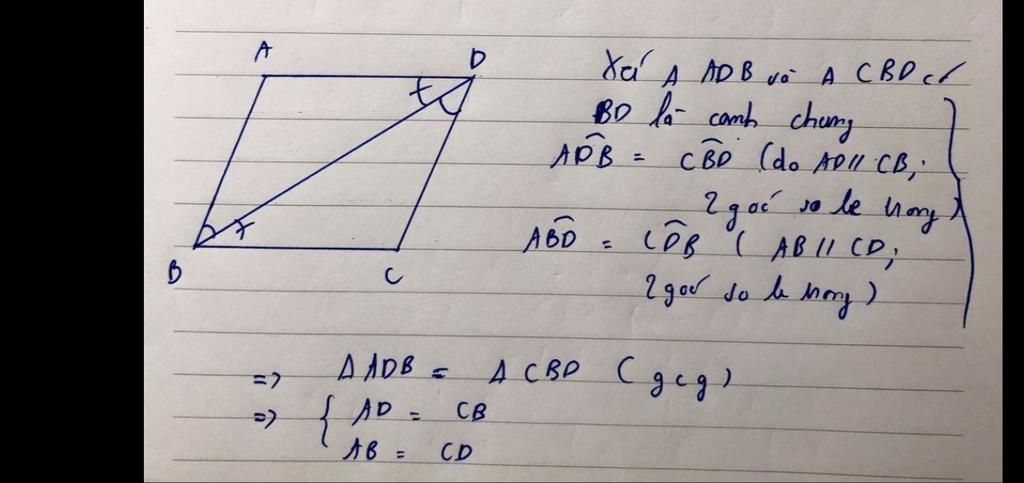 A D
B C
Xét Δ ADB và Δ CBD có
BD là cạnh chung
ADB = CBD (do AD // CB;
2 góc so le trong)
ABD = CDB ( AB // CD;
2 góc so le trong )
=> Δ ADB = Δ CBD ( gcg )
=> { AD = CB
AB = CD